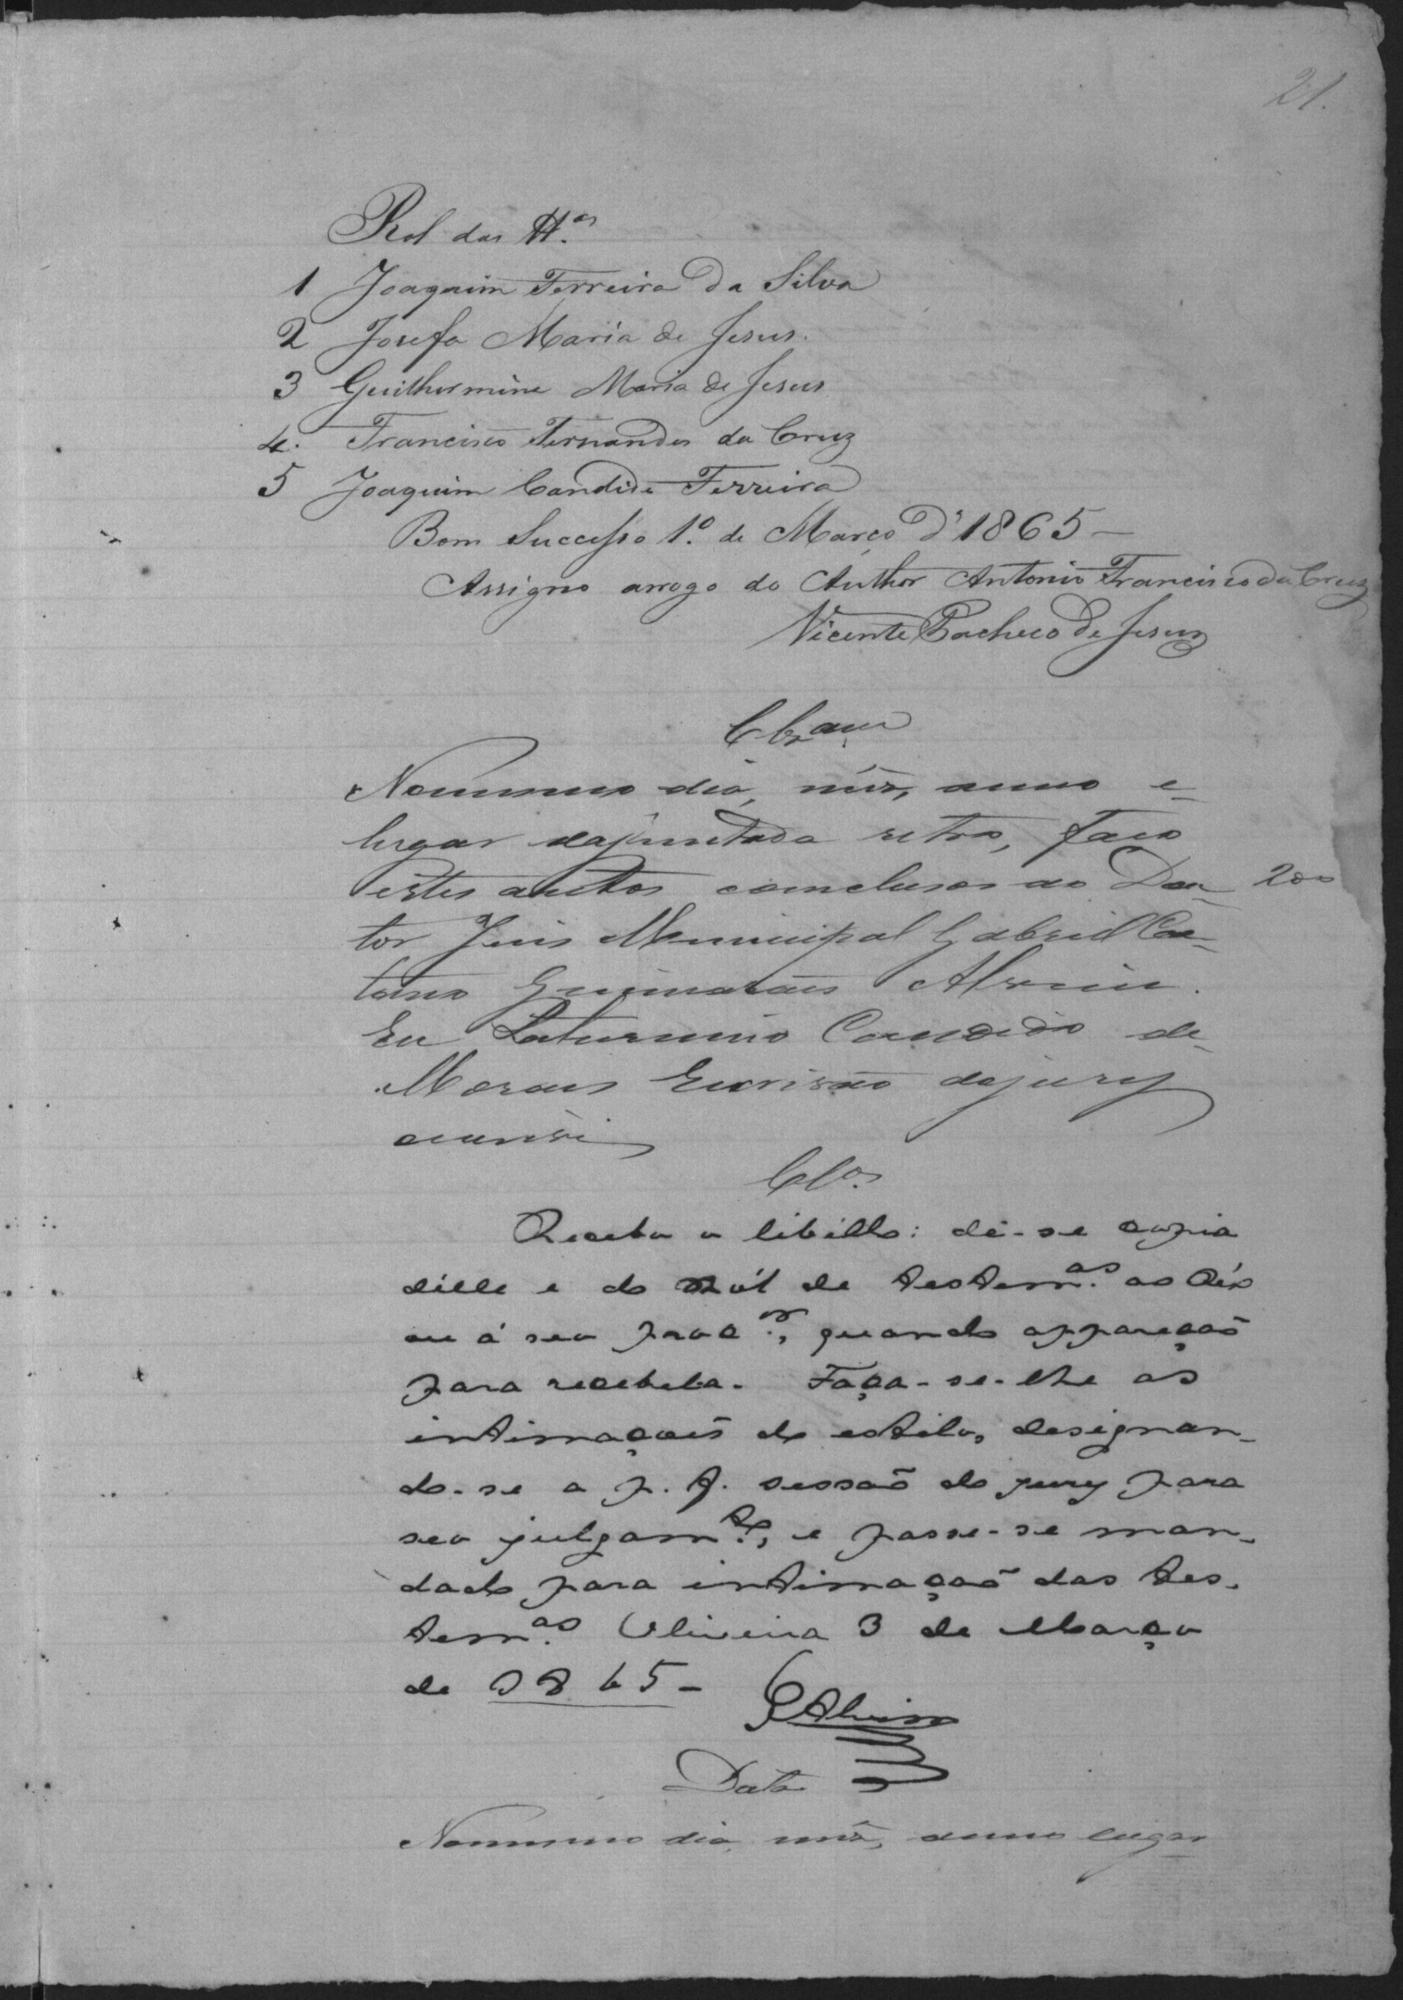 21.
Rol das ttas
1 Joaquim Ferreira da Silva
2 Josefa Maria de Jesus.
3 Guilhermina Maria de Jesus
4. Francisco Fernandes da Cruz
5 Joaquim Candido Ferreira
Bom Successo 1.º de Março d'1865 —
Assigno arrogo do Author Antonio Francisco da Cruz
Vicente Pacheco de Jesus
Clzam
Nomesmo dia, mês, anno e
lugar dajuntada retro, faço
estes autos conclusos ao Dou- 200
tor Juis Municipal Gabriel Cae-
tano Guimarães Alvim.
Eu Saturnino Candido de
Moraes Escrivão dojury
escrevi
Clos.
Recebo o libello: dê-se copia
delle e do ról de testem.as ao Réo
ou á seu proc.or, quando appareção
para recebela. Faça-se-lhe as
intimações do estilo, designan-
do-se a p. f. sessão do jury para
seu julgam.to, e passe-se man-
dado para intimação das tes-
tem.as Oliveira 3 de Março
de 1865 —
GAlvim
Data
Nomesmo dia, mês, anno lugar